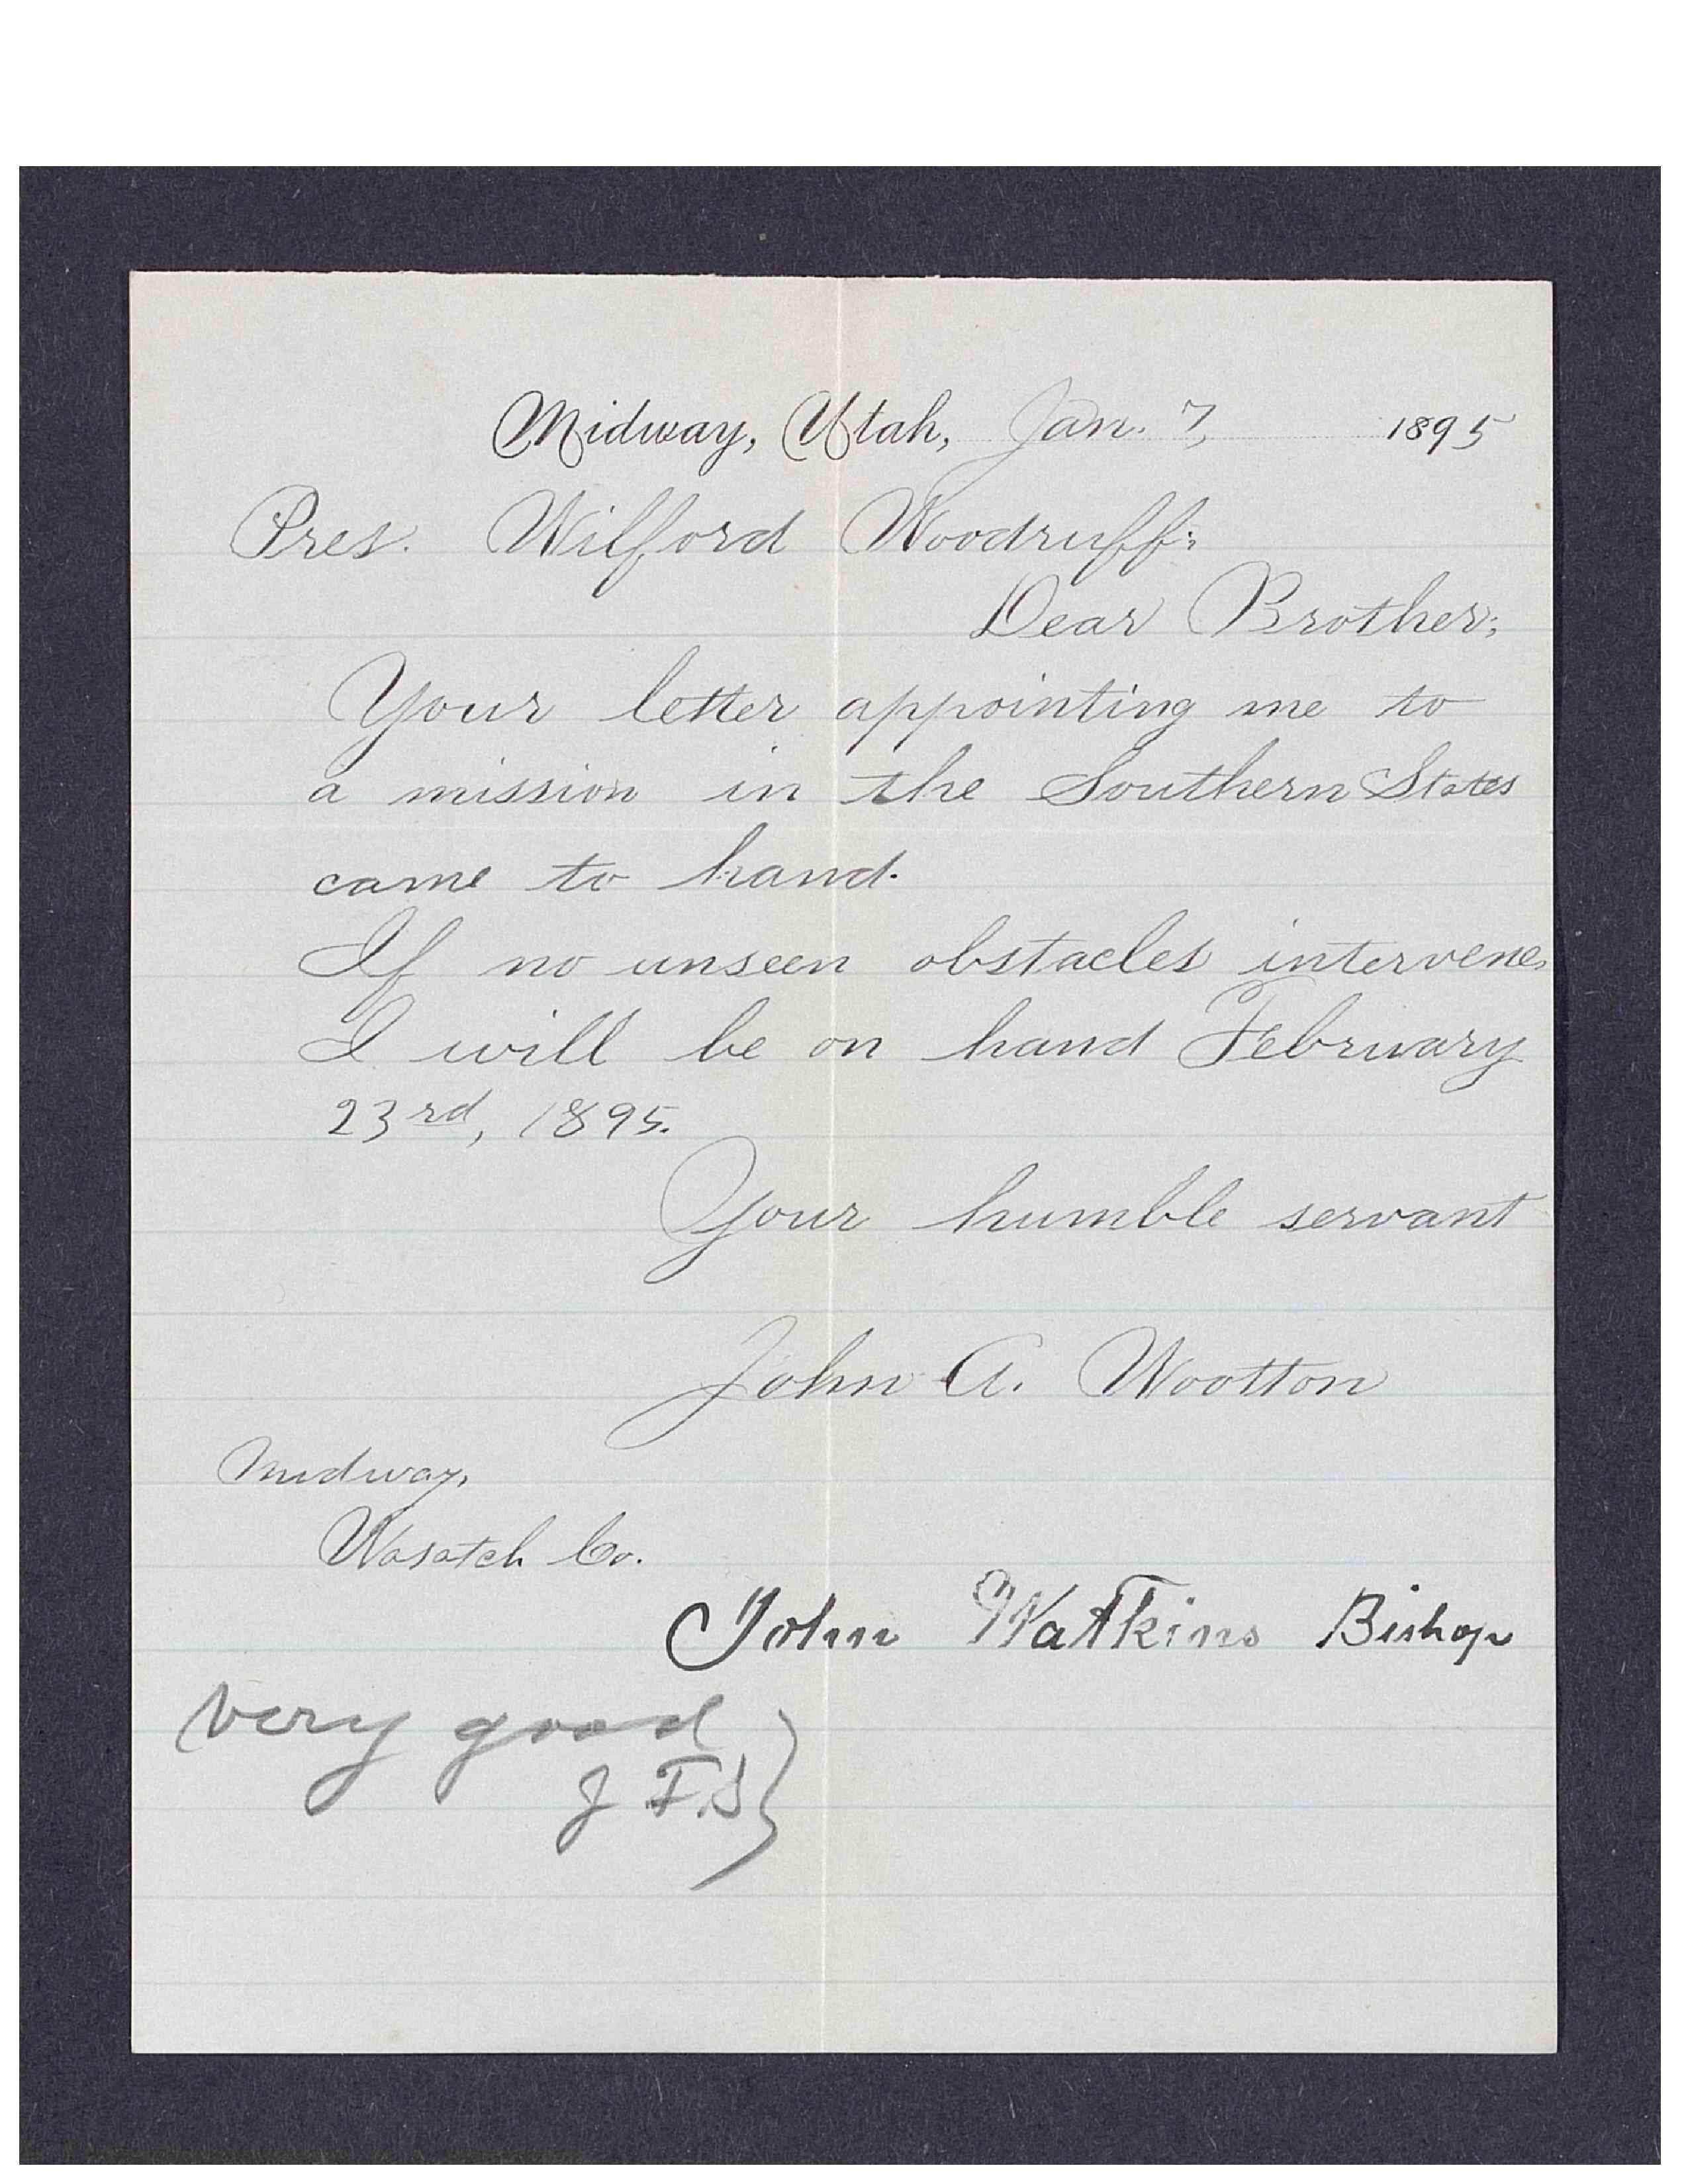 Midway, Utah, Jan. 7, 1895
Pres. Wilford Woodruff:
Dear Brother;
Your letter appointing me to
a mission in the Southern States
came to hand.
If no unseen obstacles intervene,
I will be on hand February
23rd, 1895.
Your humble servant
John A. Wootton
Midway,
Wasatch Co.
John Watkins Bishop
very good
J F.S